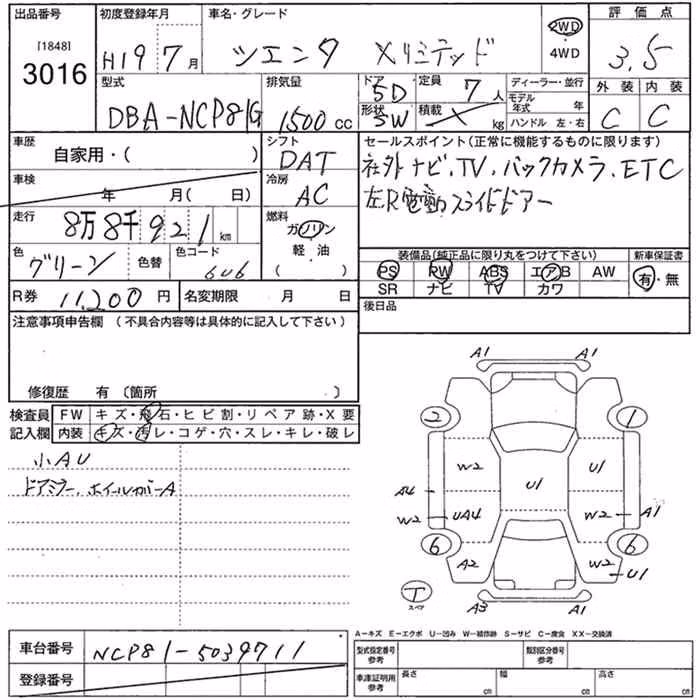 出品番号 初度登録年月 車名・グレード 評価点
[1848] 3016 H19 7月 シエンタ Xリミテッド 2WD・4WD 3.5
型式 排気量 ドア 5D 定員 7人 ディーラー・並行 外装 内装
DBA-NCP81G 1500cc 形状 SW 積載 kg モデル年式 年 C C
ハンドル 左・右
車歴 自家用・( ) シフト DAT セールスポイント(正常に機能するものに限ります)
車検 年 月( 日) 冷房 AC 社外ナビ、TV、バックカメラ、ETC
走行 8万8千921km 燃料 ガソリン・軽・油( ) 左R電動スライドドアー
色 グリーン 色替 色コード 6U6 装備品(純正品に限り丸をつけて下さい) 新車保証書
PS PW ABS エアB AW 有・無
R券 11,200円 名変期限 月 日 SR ナビ TV カワ
注意事項申告欄(不具合内容等は具体的に記入して下さい) 後日品
修復歴 有〔箇所 〕
検査員 FW キズ・飛石・ヒビ割・リペア跡・X要
記入欄 内装 キズ・汚レ・コゲ・穴・スレ・キレ・破レ
小AU
ドアミラー、ホイールカバーA
A1 A1
2 1
W2 U1 U1
A4 W2 UA4 W2 A1
6 6
A2 W2 U1
T スペア A3 A1
A-キズ E-エクボ U-凹み W-補修跡 S-サビ C-腐食 XX-交換済
車台番号 NCP81-5039711 型式指定番号 参考 類別区分番号 参考
登録番号 車庫証明用 参考 長さ cm 幅 cm 高さ cm